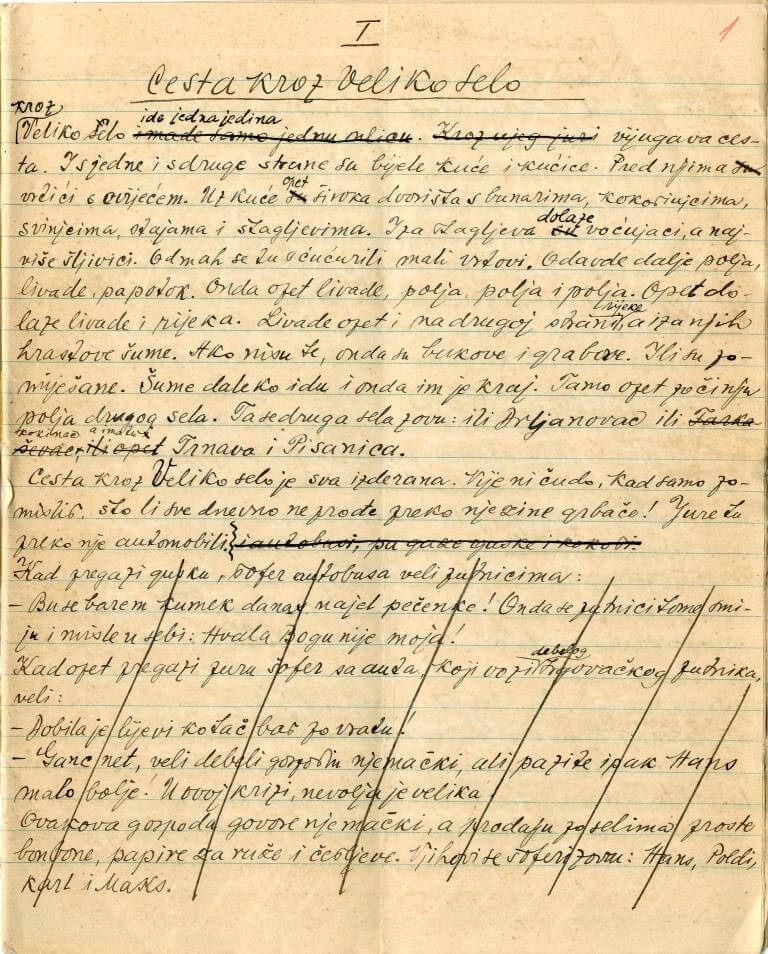 I
1
Cesta kroz Veliko Selo
kroz
ide jedna jedina
Veliko Selo imade samo jednu ulicu. Kroz njeg juri vijugava ces-
ta. I s jedne i s druge strane su bijele kuće i kućice. Pred njima su
vrtići s cvijećem. Uz kuće su široka dvorišta s bunarima, kokošinjcima,
opet
svinjcima, stajama i štagljevima. Iza štagljeva su voćnjaci, a naj-
dolaze
više šljivici. Odmah se tu šćućurili mali vrtovi. Odavde dalje polja,
livade, pa potok. Onda opet livade, polja, polja i polja. Opet do-
laze livade i rijeka. Livade opet i na drugoj strani, a iza njih
rijeke
hrastove šume. Ako nisu te, onda su bukove i grabove. Ili su po-
miješane. Šume daleko idu i onda im je kraj. Tamo opet počinju
polja drugog sela. Ta se druga sela zovu: ili Drljanovac ili
ili opet Trnava i Pisanica.
Cesta kroz Veliko selo je sva izderana. Nije ni čudo, kad samo po-
misliš, što li sve dnevno ne prođe preko njezine grbače! Jure tu
preko nje automobili i autobusi, pa gaze guske i kokoši.
Kad pregazi gusku, šofer autobusa veli putnicima:
- Bu se barem kumek danas najel pečenke! Onda se putnici tome smi-
ju i misle u sebi: Hvala Bogu nije moja!
Kad opet pregazi puru šofer sa auta, koji vozi trgovačkog putnika,
debelog
veli:
- Dobila je lijevi kotač baš po vratu!
- Ganc net, veli debeli gospodin njemački, ali pazite ipak Hans
malo bolje! U ovoj krizi, nevolja je velika.
Ovakova gospoda govore njemački, a prodaju po selima proste
bonbone, papire za ruže i češljeve. Njihovi se šoferi zovu: Hans, Poldi,
Karl i Maks.